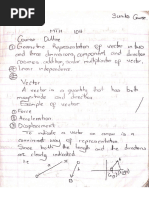 Sunko Course
MTH 102
Course Outline
① Geometric Representation of vector in two
and three dimension component and direction
cosines addition, scalar multiplication of vector.
② Linear independence
Vector
A vector is a quantity that has both
magnitude and direction
Sample of vector
① Force
② Acceleration
③ Displacement
To indicate a vector an arrow is a
convenient way of representation
Since both the length and the directions
are clearly indicated
A
B